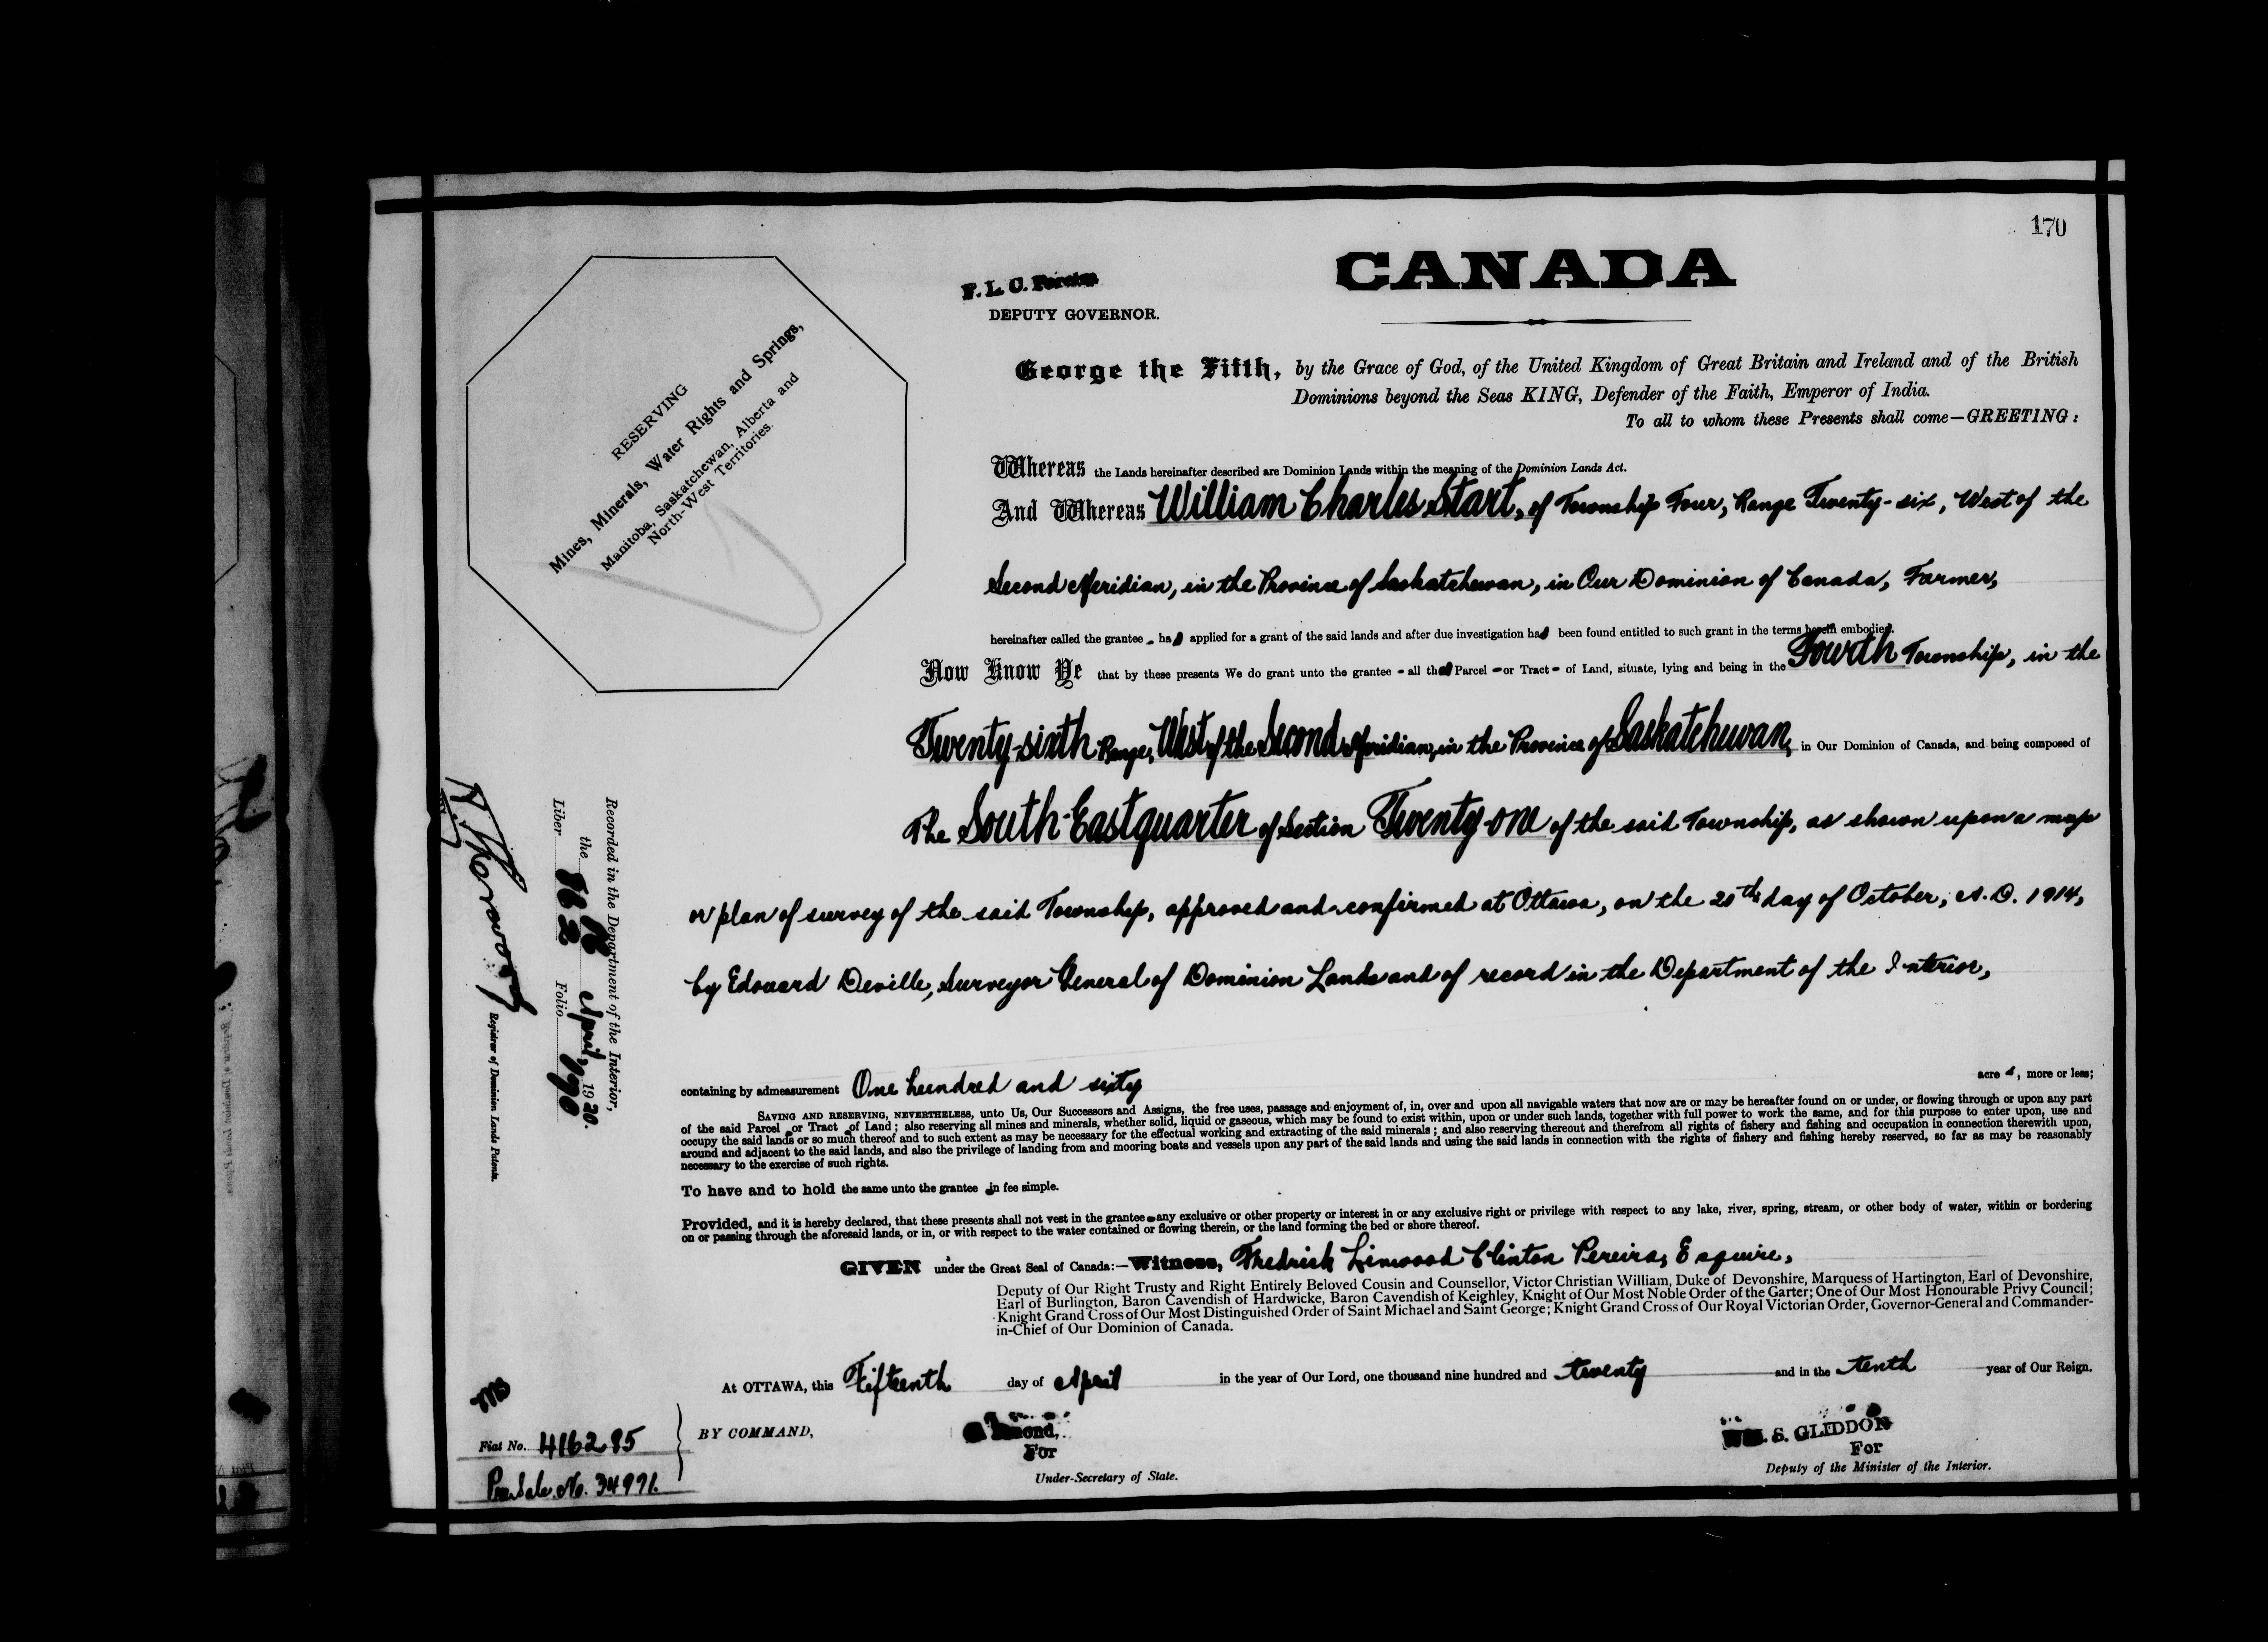 170
CANADA
F. L. C. Pereira
DEPUTY GOVERNOR.
George the Fifth, by the Grace of God, of the United Kingdom of Great Britain and Ireland and of the British
Dominions beyond the Seas KING, Defender of the Faith, Emperor of India.
To all to whom these Presents shall come—GREETING:
RESERVING
Mines, Minerals, Water Rights and Springs,
Manitoba, Saskatchewan, Alberta and
North-West Territories.
Whereas the Lands hereinafter described are Dominion Lands within the meaning of the Dominion Lands Act.
And Whereas William Charles Start, of Township Four, Range Twenty-six, West of the
Second Meridian, in the Province of Saskatchewan, in Our Dominion of Canada, Farmer,
hereinafter called the grantee - has applied for a grant of the said lands and after due investigation has been found entitled to such grant in the terms herein embodied.
Now Know Ye that by these presents We do grant unto the grantee - all that Parcel - or Tract - of Land, situate, lying and being in the Fourth Township, in the
Twenty-sixth Range, West of the Second Meridian, in the Province of Saskatchewan, in Our Dominion of Canada, and being composed of
The South-East quarter of Section Twenty-one of the said Township, as shown upon a map
or plan of survey of the said Township, approved and confirmed at Ottawa, on the 20th day of October, A.D. 1914,
by Edouard Deville, Surveyor General of Dominion Lands and of record in the Department of the Interior,
containing by admeasurement One hundred and sixty acre s, more or less;
SAVING AND RESERVING, NEVERTHELESS, unto Us, Our Successors and Assigns, the free uses, passage and enjoyment of, in, over and upon all navigable waters that now are or may be hereafter found on or under, or flowing through or upon any part
of the said Parcel or Tract of Land; also reserving all mines and minerals, whether solid, liquid or gaseous, which may be found to exist within, upon or under such lands, together with full power to work the same, and for this purpose to enter upon, use and
occupy the said lands or so much thereof and to such extent as may be necessary for the effectual working and extracting of the said minerals; and also reserving thereout and therefrom all rights of fishery and fishing and occupation in connection therewith upon,
around and adjacent to the said lands, and also the privilege of landing from and mooring boats and vessels upon any part of the said lands and using the said lands in connection with the rights of fishery and fishing hereby reserved, so far as may be reasonably
necessary to the exercise of such rights.
To have and to hold the same unto the grantee in fee simple.
Provided, and it is hereby declared, that these presents shall not vest in the grantee - any exclusive or other property or interest in or any exclusive right or privilege with respect to any lake, river, spring, stream, or other body of water, within or bordering
on or passing through the aforesaid lands, or in, or with respect to the water contained or flowing therein, or the land forming the bed or shore thereof.
GIVEN under the Great Seal of Canada:—Witness, Fredrick Linwood Clinton Pereira, Esquire,
Deputy of Our Right Trusty and Right Entirely Beloved Cousin and Counsellor, Victor Christian William, Duke of Devonshire, Marquess of Hartington, Earl of Devonshire,
Earl of Burlington, Baron Cavendish of Hardwicke, Baron Cavendish of Keighley, Knight of Our Most Noble Order of the Garter; One of Our Most Honourable Privy Council;
Knight Grand Cross of Our Most Distinguished Order of Saint Michael and Saint George; Knight Grand Cross of Our Royal Victorian Order, Governor-General and Commander-
in-Chief of Our Dominion of Canada.
At OTTAWA, this Fifteenth day of April in the year of Our Lord, one thousand nine hundred and twenty and in the tenth year of Our Reign.
BY COMMAND,
For
Under-Secretary of State.
WM. S. GLIDDON
For
Deputy of the Minister of the Interior.
Fiat No. 416285
Pre. Sale. No. 34991.
Recorded in the Department of the Interior,
the April, 1920.
Liber 862 Folio 170
Registrar of Dominion Lands Patents.